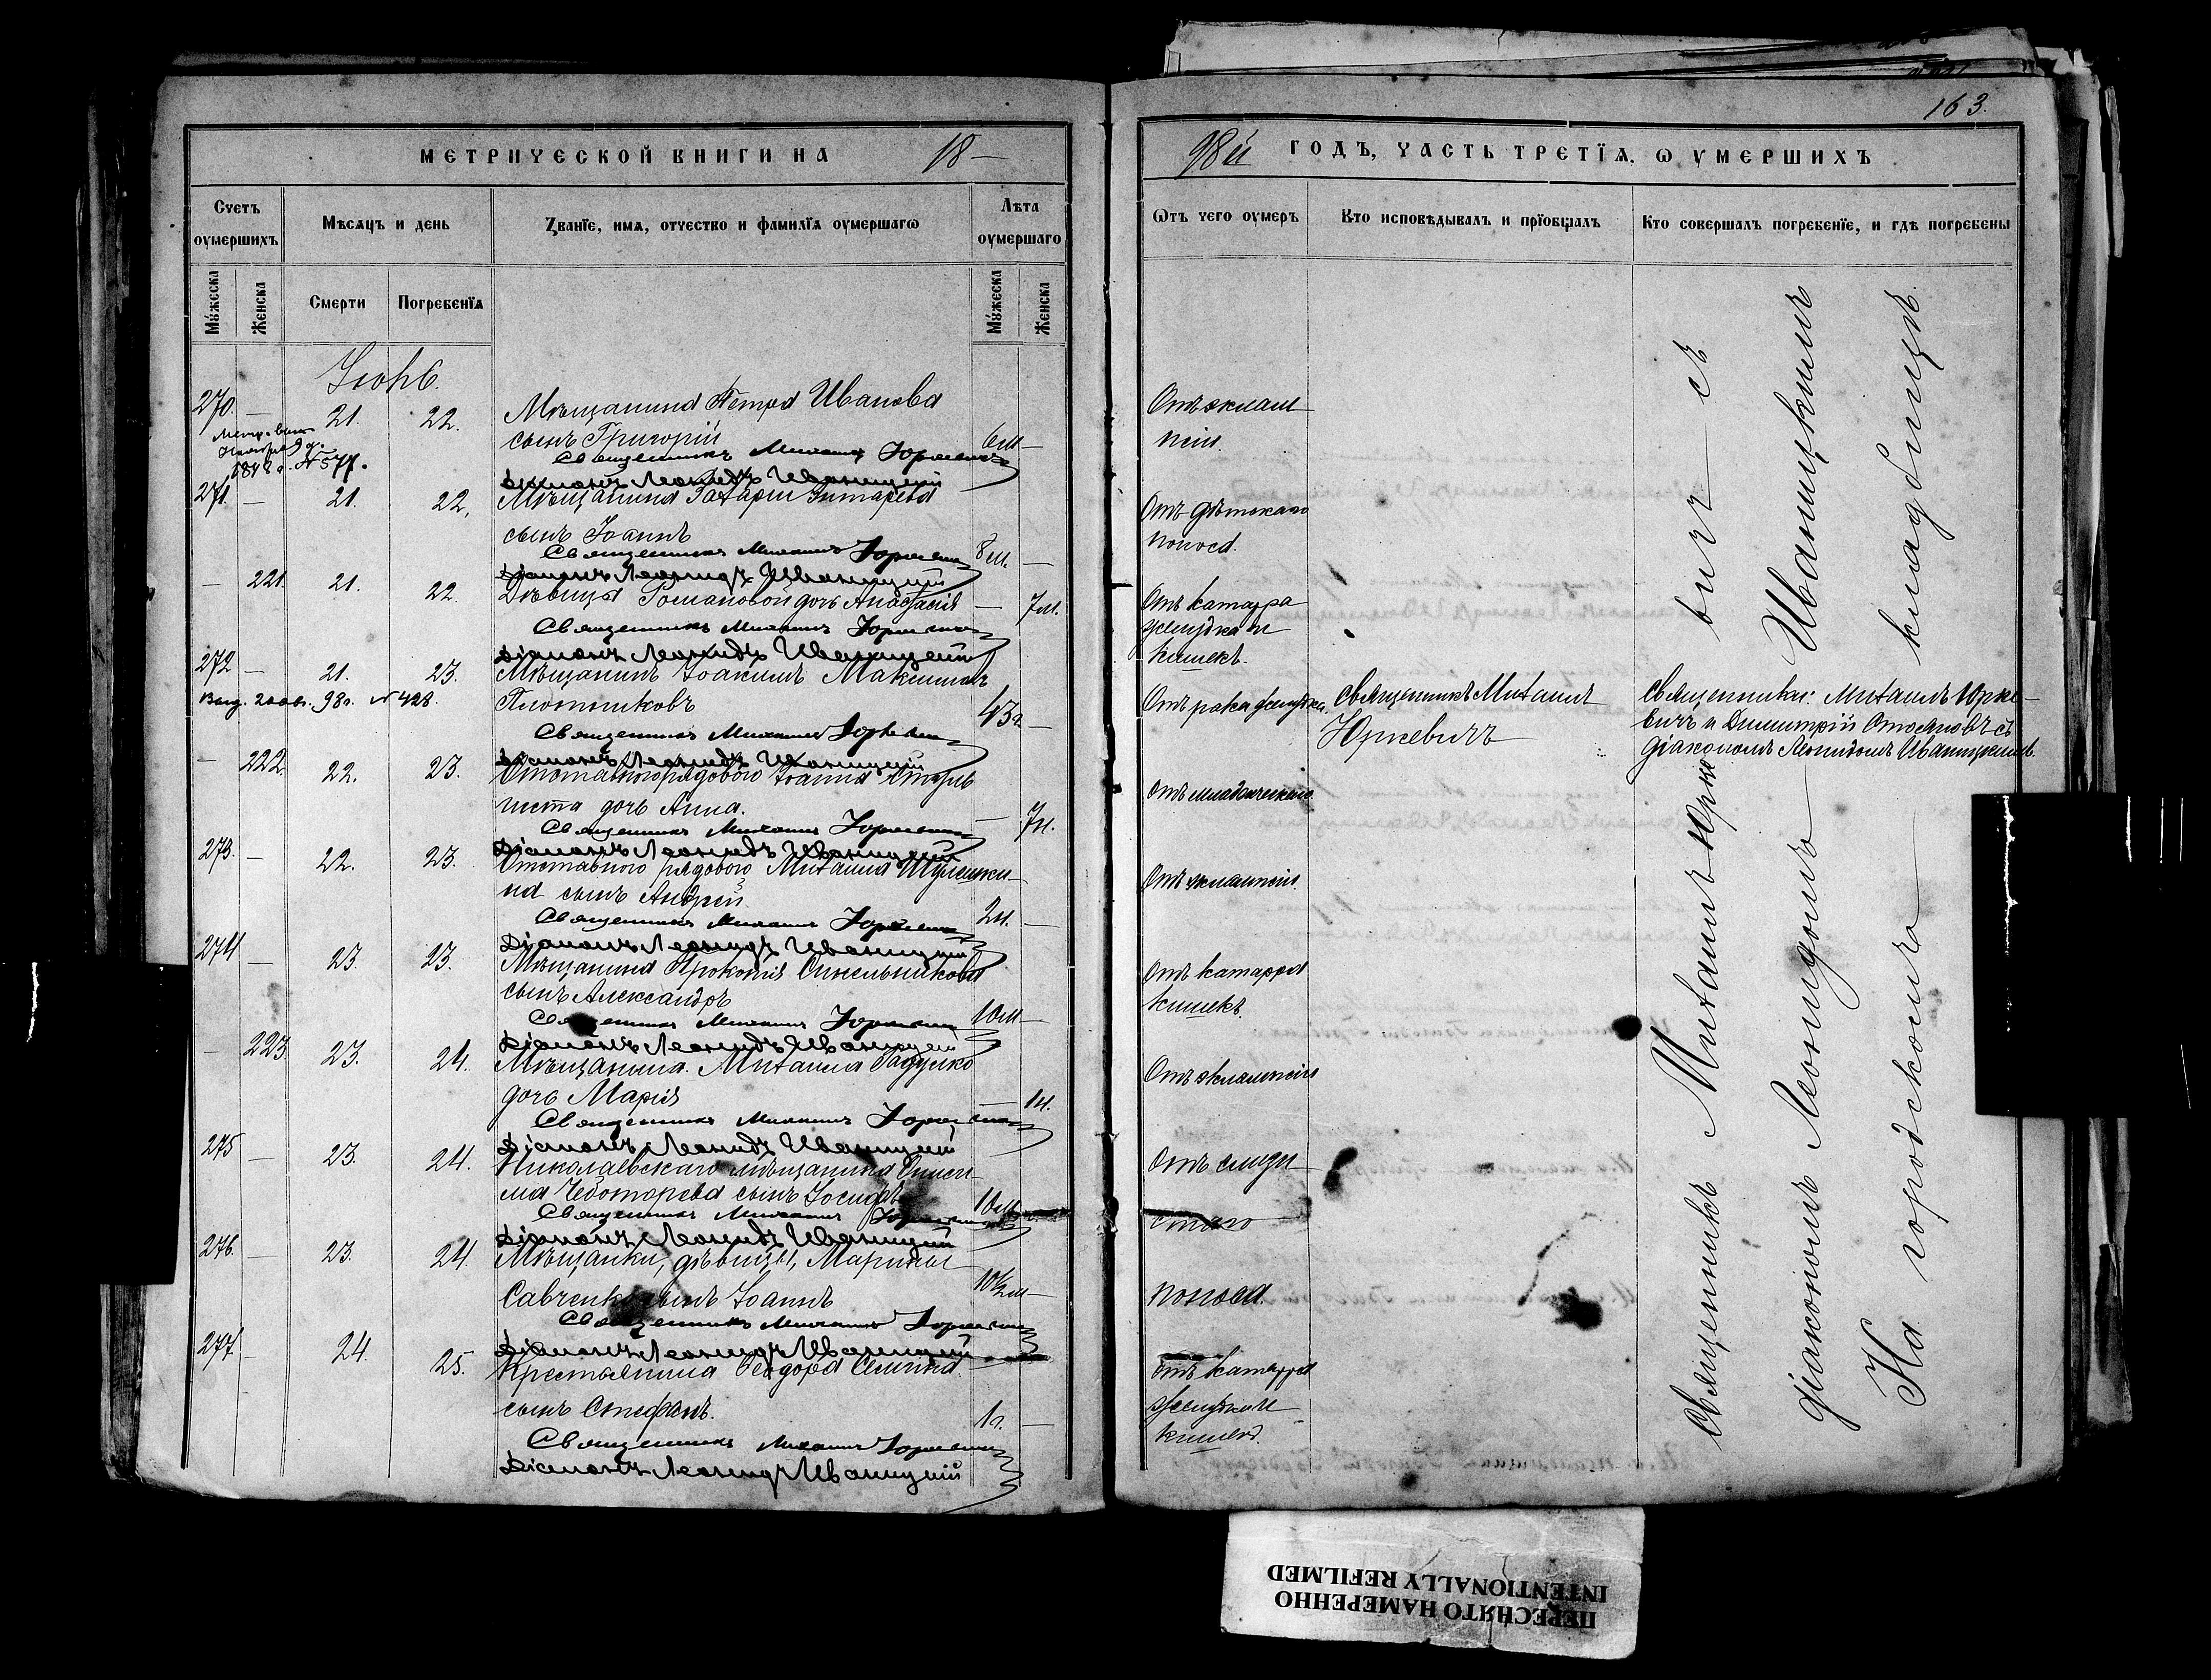 163.
МЕТРИЧЕСКОЙ КНИГИ НА 18—
98й ГОДЪ, ЧАСТЬ ТРЕТІЯ, Ѡ УМЕРШИХЪ
Счетъ оумершихъ
Мѣсяцъ и день
Званїе, имя, отчество и фамилїя оумершагѡ
Лѣта оумершаго
Мужеска
Женска
Смерти
Погребенїя
Мужеска
Женска
Ѡтъ чего оумеръ
Кто исповѣдывалъ и прїобщалъ
Кто совершалъ погребенїе, и гдѣ погребены
Іюнь.
270. — 21. 22. Мѣщанина Петра Иванова
сынъ Григорій 6м —
№ 577.
Священникъ Михаилъ Юркевичъ
Діаконъ Леонидъ Иваницкій
271. — 21. 22. Мѣщанина Захарія
сынъ Іоаннъ 8м. —
Священникъ Михаилъ Юркевичъ
Діаконъ Леонидъ Иваницкій
— 221. 21. 22. Дѣвицы Романовой дочь Анастасія — 7м.
Священникъ Михаилъ Юркевичъ
Діаконъ Леонидъ Иваницкій
272 — 21. 23. Мѣщанинъ Іоакимъ Максимовъ
Выд. 98г. № 428.
Плотниковъ 43г —
Священникъ Михаилъ Юркевичъ
Діаконъ Леонидъ Иваницкій
— 222. 22. 23. Отставного рядового Іоанна
дочь Анна. — 7м.
Священникъ Михаилъ Юркевичъ
Діаконъ Леонидъ Иваницкій
273. — 22. 23. Отставного рядового Михаила
на сынъ Андрей 2м. —
Священникъ Михаилъ Юркевичъ
Діаконъ Леонидъ Иваницкій
274 — 23. 23. Мѣщанина Прокопія Синельникова
сынъ Александръ 10м —
Священникъ Михаилъ Юркевичъ
Діаконъ Леонидъ Иваницкій
— 223 23. 24. Мѣщанина Михаила
дочь Марія — 1м.
Священникъ Михаилъ Юркевичъ
Діаконъ Леонидъ Иваницкій
275 — 23. 24. Николаевскаго мѣщанина Ониси-
ма Чеботарева сынъ Іосифъ 10м
Священникъ Михаилъ Юркевичъ
Діаконъ Леонидъ Иваницкій
276. — 23. 24. Мѣщанки, дѣвицы, Марины
Савченко сынъ Іоаннъ 10½м —
Священникъ Михаилъ Юркевичъ
Діаконъ Леонидъ Иваницкій
277. — 24. 25. Крестьянина Ѳеодора
сынъ Стефанъ. 1г. —
Священникъ Михаилъ Юркевичъ
Діаконъ Леонидъ Иваницкій
Отъ эклам
псіи.
Отъ дѣтскаго
поноса.
Отъ катарра
желудка и
кишекъ.
Отъ рака желудка.
Священникъ Михаилъ
Юркевичъ
Священники: Михаилъ Юрке-
вичъ и Димитрій Стояновъ съ
діакономъ Леонидомъ Иваницкимъ.
Отъ младенческаго
Отъ эклампсіи.
Отъ катарра
кишекъ.
Отъ эклампсіи
Отъ слизи
стаго
поноса.
отъ катарра
желудка и
кишекъ.
Священникъ Михаилъ Юркевичъ съ
діакономъ Леонидомъ Иваницкимъ
На городскомъ кладбищѣ.
ПЕРЕСНЯТО НАМЕРЕННО
INTENTIONALLY REFILMED